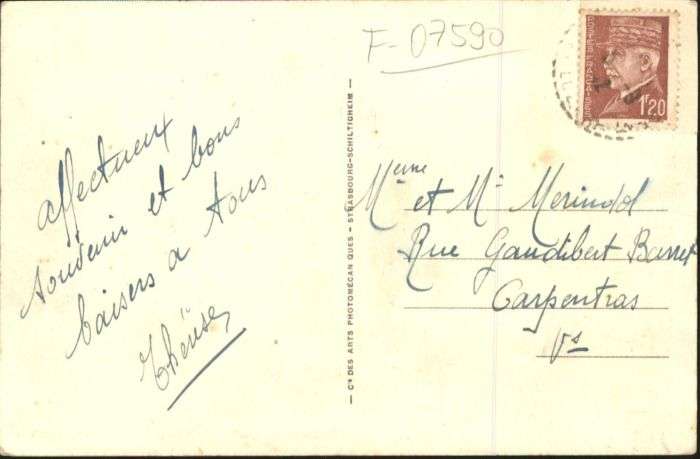 F-07590
1F20
affectueux
souvenir et bons
baisers a tous
Thérèse
Cie DES ARTS PHOTOMÉCANIQUES - STRASBOURG-SCHILTIGHEIM
Mme et Mr Merindol
Rue Gaudibert Barret
Carpentras
Vse